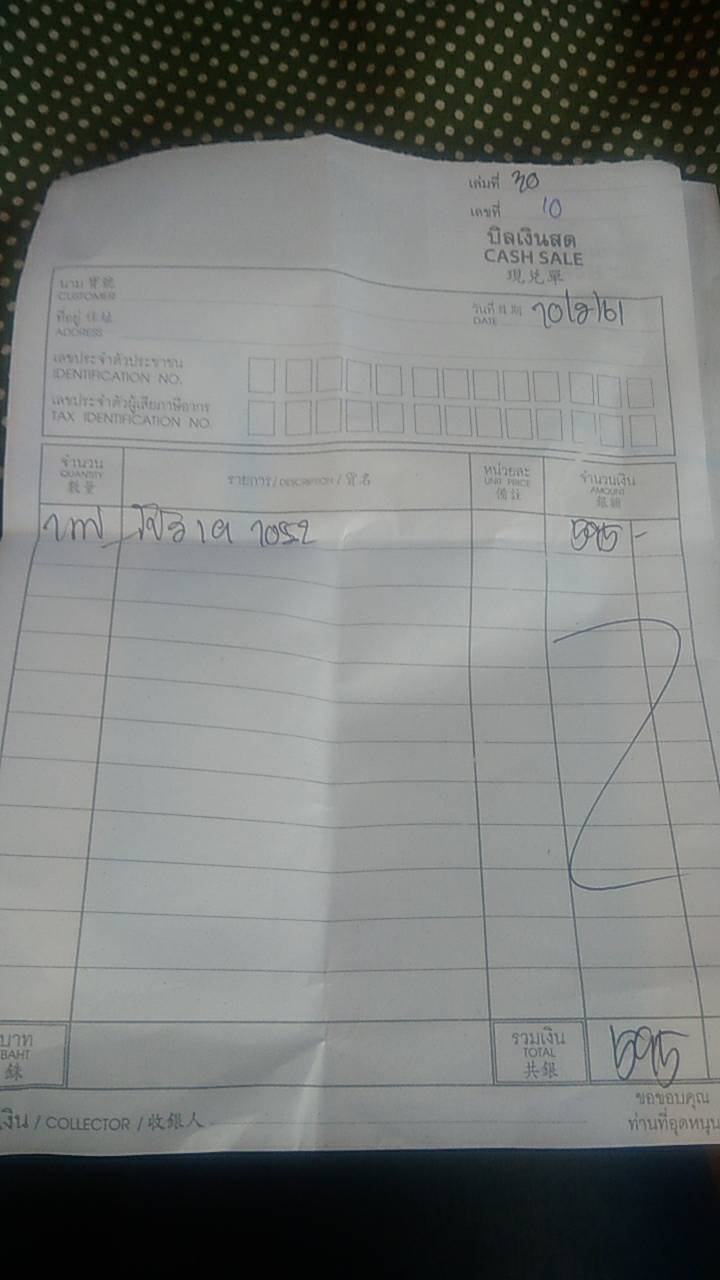 เล่มที่ 30
เลขที่ 10
บิลเงินสด
CASH SALE
現兑單
นาม 寶號
CUSTOMER
วันที่ 日期
DATE
ที่อยู่ 住址
ADDRESS
เลขประจำตัวประชาชน
IDENTIFICATION NO.
เลขประจำตัวผู้เสียภาษีอากร
TAX IDENTIFICATION NO.
จำนวน
QUANTITY
數量
รายการ / DESCRIPTION / 貨名
หน่วยละ
UNIT PRICE
備註
จำนวนเงิน
AMOUNT
銀額
595 -
บาท
BAHT
銖
รวมเงิน
TOTAL
共銀
595
เงิน / COLLECTOR / 收銀人
ขอขอบคุณ
ท่านที่อุดหนุน